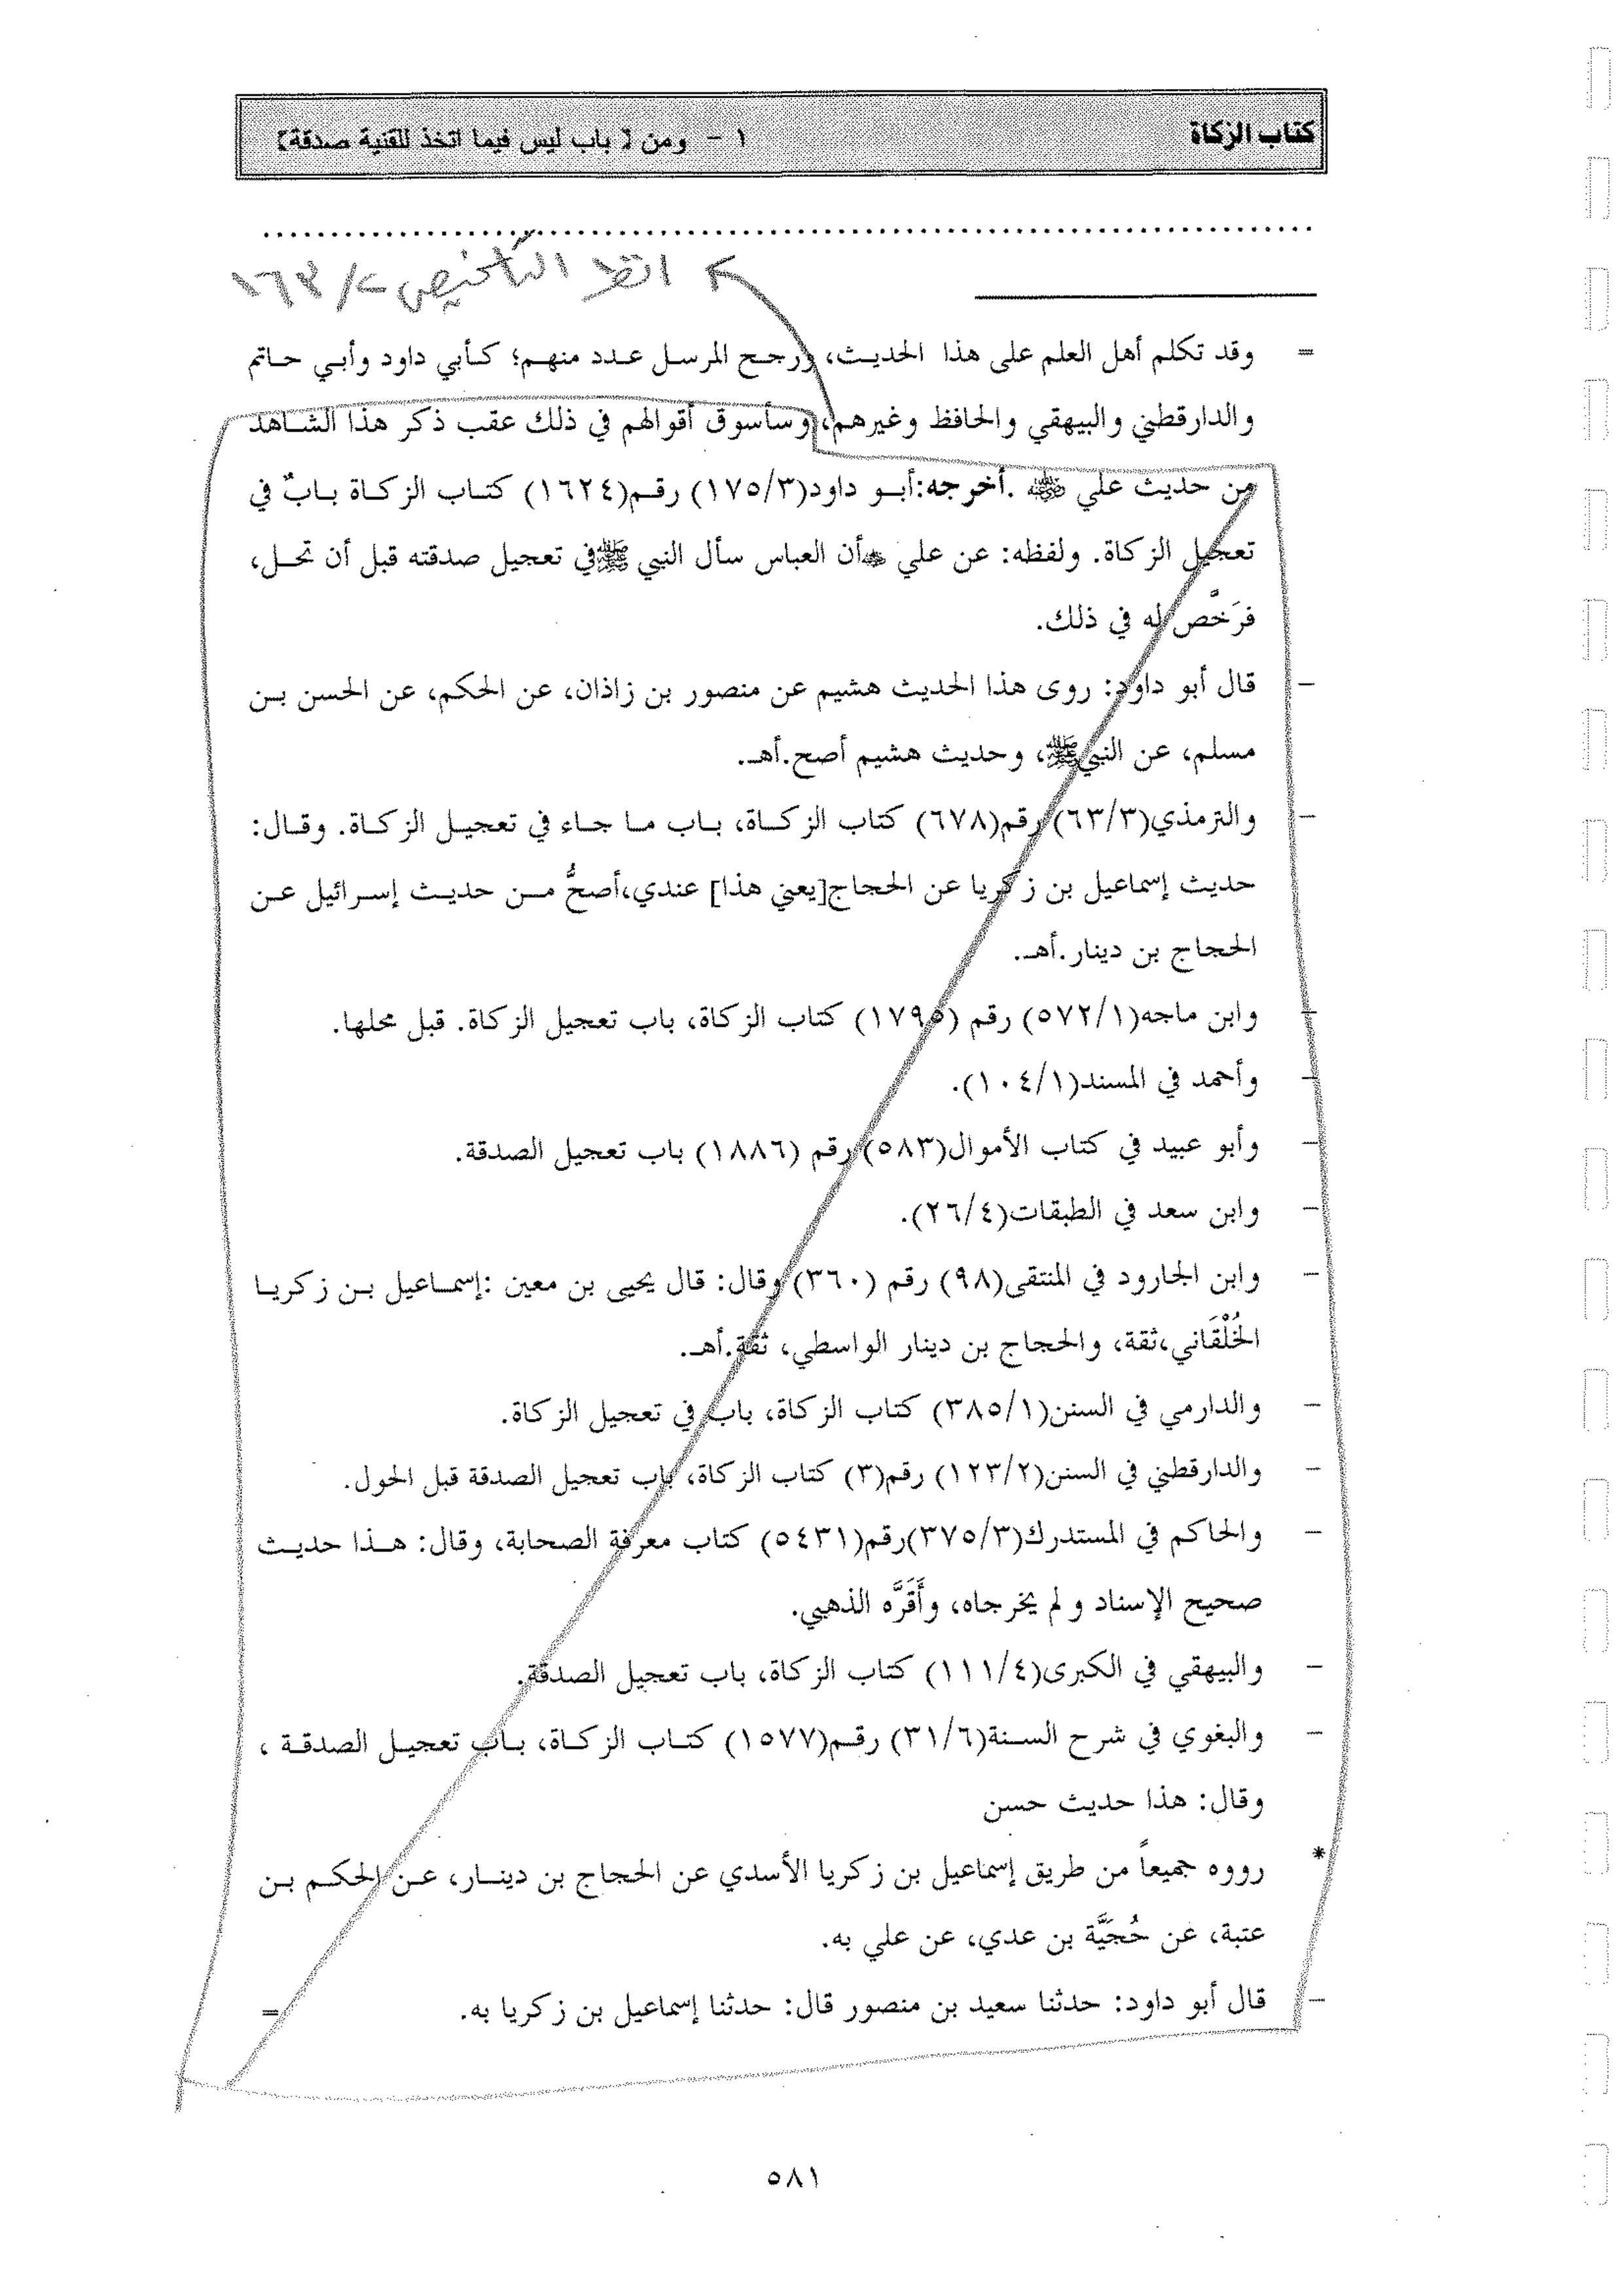 كتاب الزكاة
١ - ومن ( باب ليس فيما اتخذ للقنية صدقة )
انظر التلخيص ٢/ ١٦٣
= وقد تكلم أهل العلم على هذا الحديث، ورجح المرسل عدد منهم؛ كأبي داود وأبي حاتم
والدارقطني والبيهقي والحافظ وغيرهم، وسأسوق أقوالهم في ذلك عقب ذكر هذا الشاهد
من حديث علي ﷺ .أخرجه:أبو داود(١٧٥/٣) رقم(١٦٢٤) كتاب الزكاة بابٌ في
تعجيل الزكاة. ولفظه: عن علي أن العباس سأل النبي ﷺفي تعجيل صدقته قبل أن تحل،
فرَخَّص له في ذلك.
– قال أبو داود: روى هذا الحديث هشيم عن منصور بن زاذان، عن الحكم، عن الحسن بن
مسلم، عن النبيﷺ، وحديث هشيم أصح.أهـ.
– والترمذي(٦٣/٣) رقم(٦٧٨) كتاب الزكاة، باب ما جاء في تعجيل الزكاة. وقال:
حديث إسماعيل بن زكريا عن الحجاج[يعني هذا] عندي،أصحُّ من حديث إسرائيل عن
الحجاج بن دينار.أهـ.
– وابن ماجه(٥٧٢/١) رقم (١٧٩٥) كتاب الزكاة، باب تعجيل الزكاة. قبل محلها.
– وأحمد في المسند(١٠٤/١).
– وأبو عبيد في كتاب الأموال(٥٨٣) رقم (١٨٨٦) باب تعجيل الصدقة.
– وابن سعد في الطبقات(٢٦/٤).
– وابن الجارود في المنتقى(٩٨) رقم (٣٦٠) وقال: قال يحيى بن معين :إسماعيل بن زكريا
الخُلْقَاني،ثقة، والحجاج بن دينار الواسطي، ثقة.أهـ.
– والدارمي في السنن(٣٨٥/١) كتاب الزكاة، باب في تعجيل الزكاة.
– والدارقطني في السنن(١٢٣/٢) رقم(٣) كتاب الزكاة، باب تعجيل الصدقة قبل الحول.
– والحاكم في المستدرك(٣٧٥/٣)رقم(٥٤٣١) كتاب معرفة الصحابة، وقال: هذا حديث
صحيح الإسناد و لم يخرجاه، وأَقَرَّه الذهبي.
– والبيهقي في الكبرى(١١١/٤) كتاب الزكاة، باب تعجيل الصدقة.
– والبغوي في شرح السنة(٣١/٦) رقم(١٥٧٧) كتاب الزكاة، باب تعجيل الصدقة ،
وقال: هذا حديث حسن
* رووه جميعاً من طريق إسماعيل بن زكريا الأسدي عن الحجاج بن دينار، عن الحكم بن
عتبة، عن حُجَيَّة بن عدي، عن علي به.
– قال أبو داود: حدثنا سعيد بن منصور قال: حدثنا إسماعيل بن زكريا به. =
٥٨١